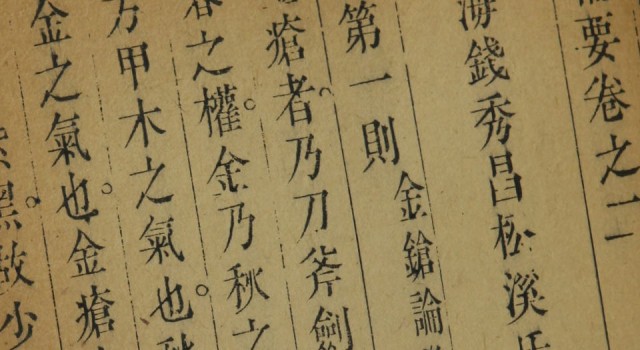 要卷之二
海錢秀昌松溪氏
第一則
金鎗論
瘡者乃刀斧劍
之權金乃秋之
方甲木之氣也
金之氣也金瘡
黑故少